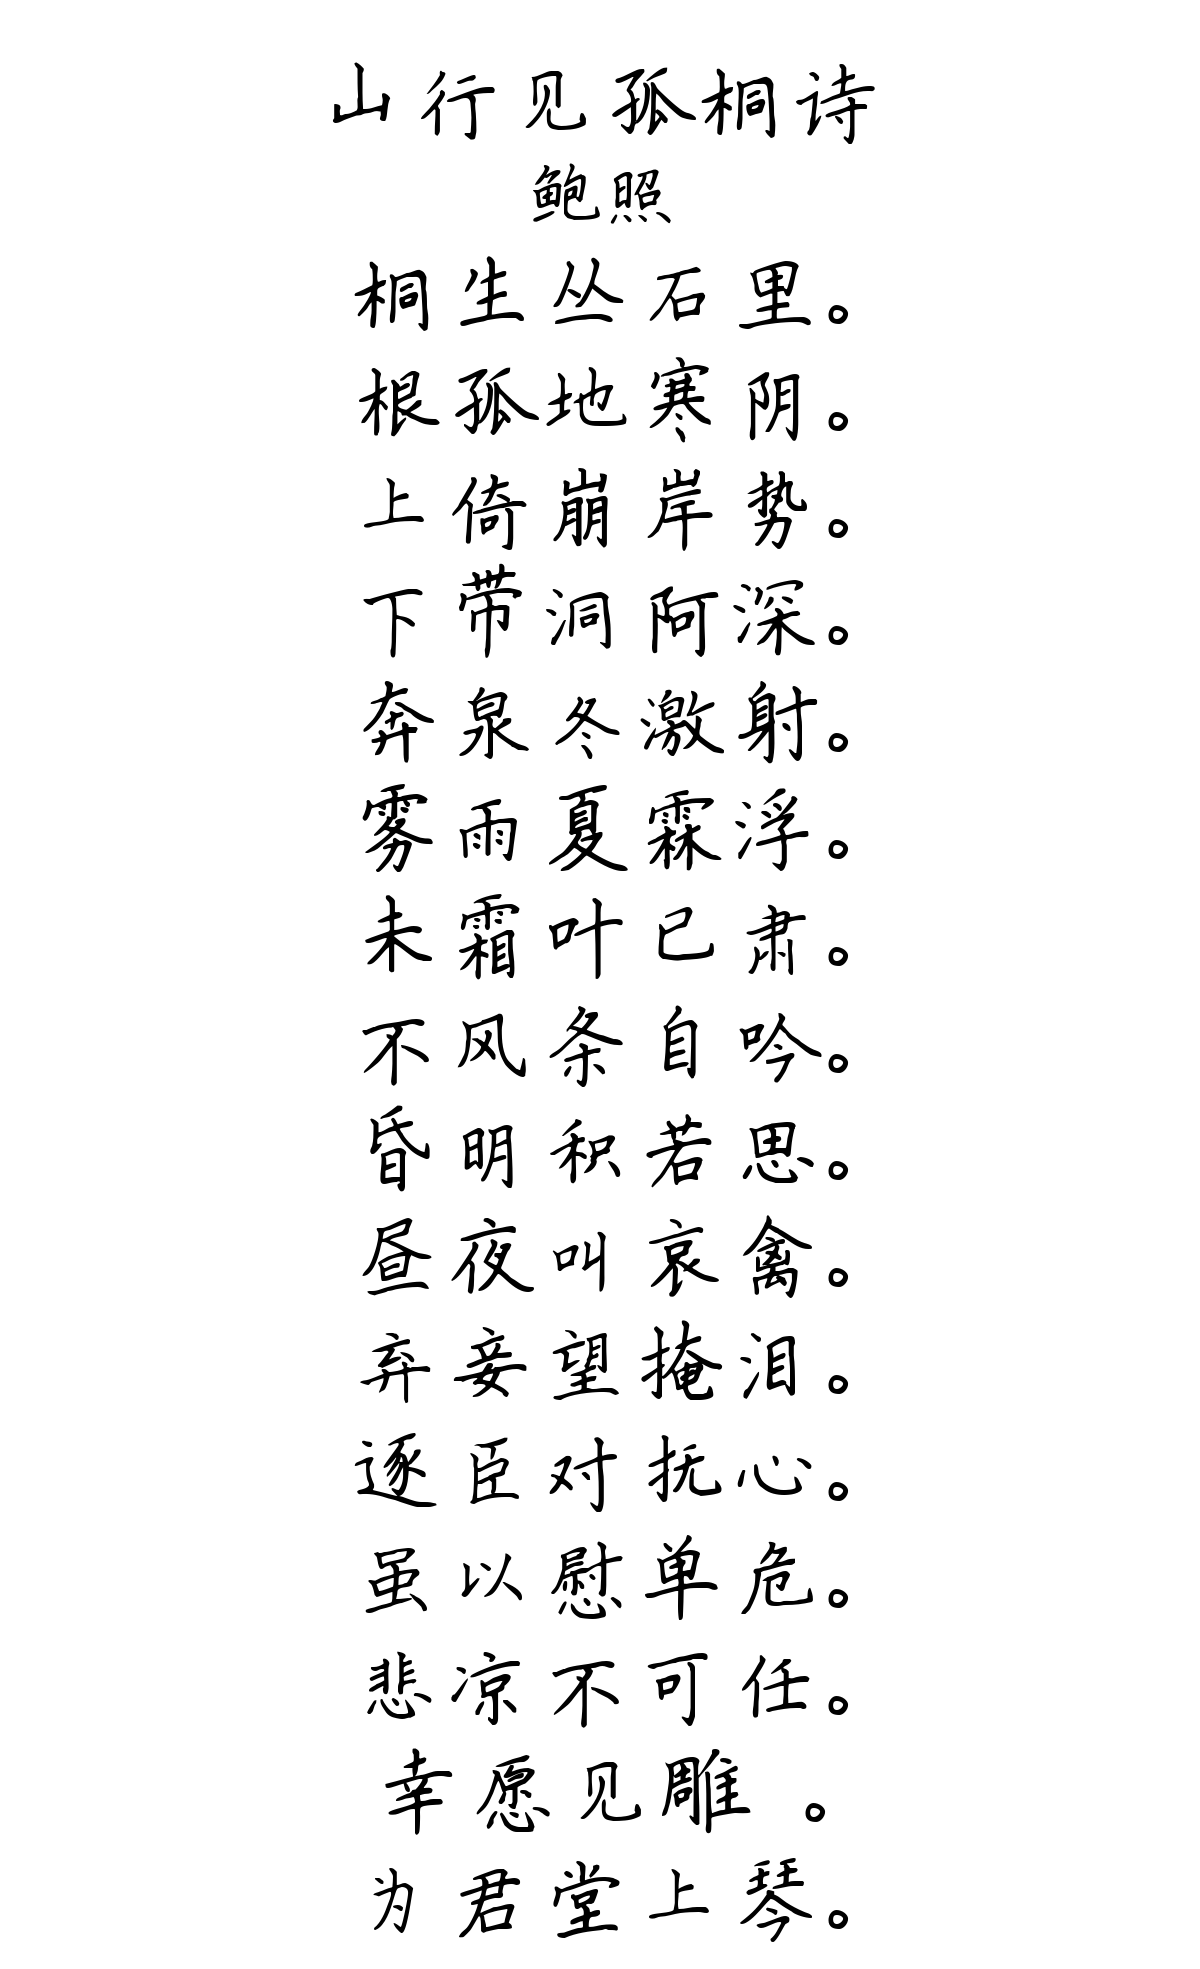 山行见孤桐诗
鲍照
桐生丛石里。
根孤地寒阴。
上倚崩岸势。
下带洞阿深。
奔泉冬激射。
雾雨夏霖浮。
未霜叶已肃。
不风条自吟。
昏明积若思。
昼夜叫哀禽。
弃妾望掩泪。
逐臣对抚心。
虽以慰单危。
悲凉不可任。
幸愿见雕 。
为君堂上琴。